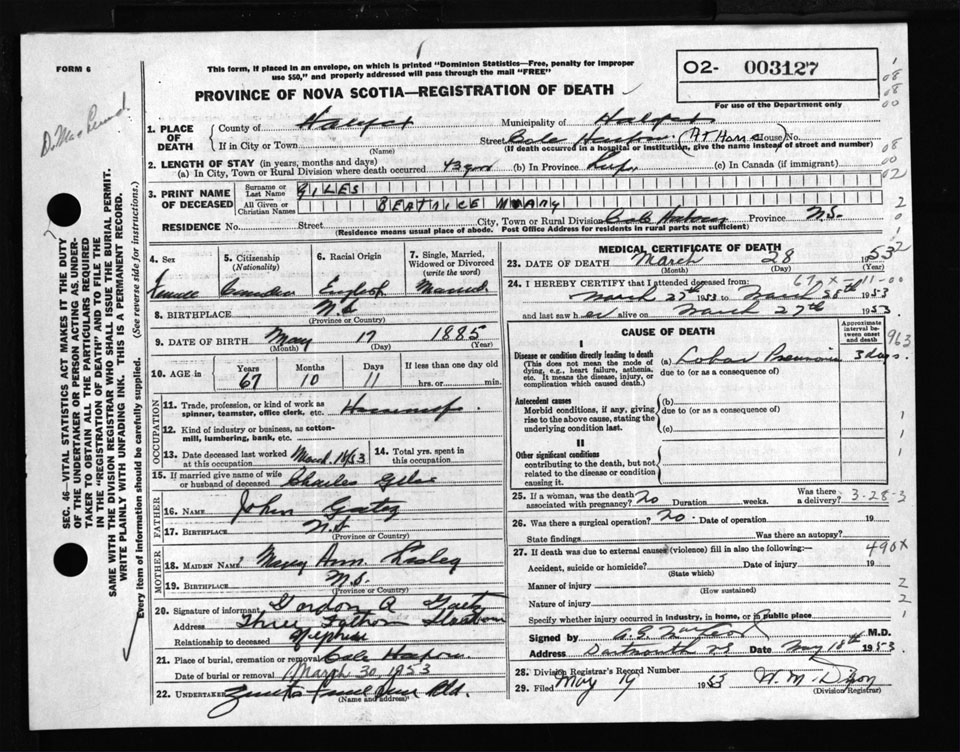 FORM 6
This form, if placed in an envelope, on which is printed "Dominion Statistics—Free, penalty for improper
use $50," and properly addressed will pass through the mail "FREE"
PROVINCE OF NOVA SCOTIA—REGISTRATION OF DEATH
02- 003127
For use of the Department only
1. PLACE OF DEATH
County of Halifax Municipality of Halifax
If in City or Town (Name) Street Cole Harbour (At Home House) No.
(If death occurred in a hospital or institution, give the name instead of street and number)
2. LENGTH OF STAY (in years, months and days)
(a) In City, Town or Rural Division where death occurred 43 years (b) In Province Life (c) In Canada (if immigrant)
3. PRINT NAME OF DECEASED
Surname or Last Name GILES
All Given or Christian Names BEATRICE MARY
RESIDENCE No. Street City, Town or Rural Division Cole Harbour Province N.S.
(Residence means usual place of abode. Post Office Address for residents in rural parts not sufficient)
4. Sex 5. Citizenship (Nationality) 6. Racial Origin 7. Single, Married, Widowed or Divorced (write the word)
Female Canadian English Married
8. BIRTHPLACE N.S.
(Province or Country)
9. DATE OF BIRTH May 17 1885
(Month) (Day) (Year)
10. AGE in Years Months Days If less than one day
67 10 11 hrs. or min.
OCCUPATION
11. Trade, profession, or kind of work as spinner, teamster, office clerk, etc. Housewife
12. Kind of industry or business, as cotton-mill, lumbering, bank, etc.
13. Date deceased last worked at this occupation March 1953 14. Total yrs. spent in this occupation
15. If married give name of wife or husband of deceased Charles Giles
FATHER
16. NAME John Gaetz
17. BIRTHPLACE N.S.
(Province or Country)
MOTHER
18. MAIDEN NAME Mary Ann
19. BIRTHPLACE N.S.
(Province or Country)
20. Signature of informant Gordon A Gaetz
Address Three Fathom Harbour
Relationship to deceased Nephew
21. Place of burial, cremation or removal Cole Harbour
Date of burial or removal March 30, 1953
22. Undertaker
(Name and address)
MEDICAL CERTIFICATE OF DEATH
23. DATE OF DEATH March 28 1953
(Month) (Day) (Year)
24. I HEREBY CERTIFY that I attended deceased from:
March 27th 1953 to March 28th 1953
and last saw her alive on March 27th 1953.
CAUSE OF DEATH
Approximate interval between onset and death
I
Disease or condition directly leading to death (a) Lobar Pneumonia 3 days.
(This does not mean the mode of dying, e.g., heart failure, asthenia, etc. It means the disease, injury, or complication which caused death.)
due to (or as a consequence of)
Antecedent causes
Morbid conditions, if any, giving rise to the above cause, stating the underlying condition last.
(b)
due to (or as a consequence of)
(c)
II
Other significant conditions
contributing to the death, but not related to the disease or condition causing it.
25. If a woman, was the death associated with pregnancy? no Duration weeks. Was there a delivery? 3-28-3
26. Was there a surgical operation? no. Date of operation 19
State findings Was there an autopsy?
27. If death was due to external causes (violence) fill in also the following:— 490X
Accident, suicide or homicide? Date of injury 19
(State which)
Manner of injury
(How sustained)
Nature of injury
Specify whether injury occurred in industry, in home, or in public place
Signed by M.D.
Address Dartmouth NS Date May 18th 1953.
28. Division Registrar's Record Number
29. Filed May 19 1953 W. M. Dixon
(Division Registrar)
SEC. 46—VITAL STATISTICS ACT MAKES IT THE DUTY
OF THE UNDERTAKER OR PERSON ACTING AS UNDER-
TAKER TO OBTAIN ALL THE PARTICULARS REQUIRED
IN THE "REGISTRATION OF DEATH" AND TO FILE THE
SAME WITH THE DIVISION REGISTRAR WHO SHALL ISSUE THE BURIAL PERMIT.
WRITE PLAINLY WITH UNFADING INK. THIS IS A PERMANENT RECORD.
Every item of information should be carefully supplied. (See reverse side for instructions.)